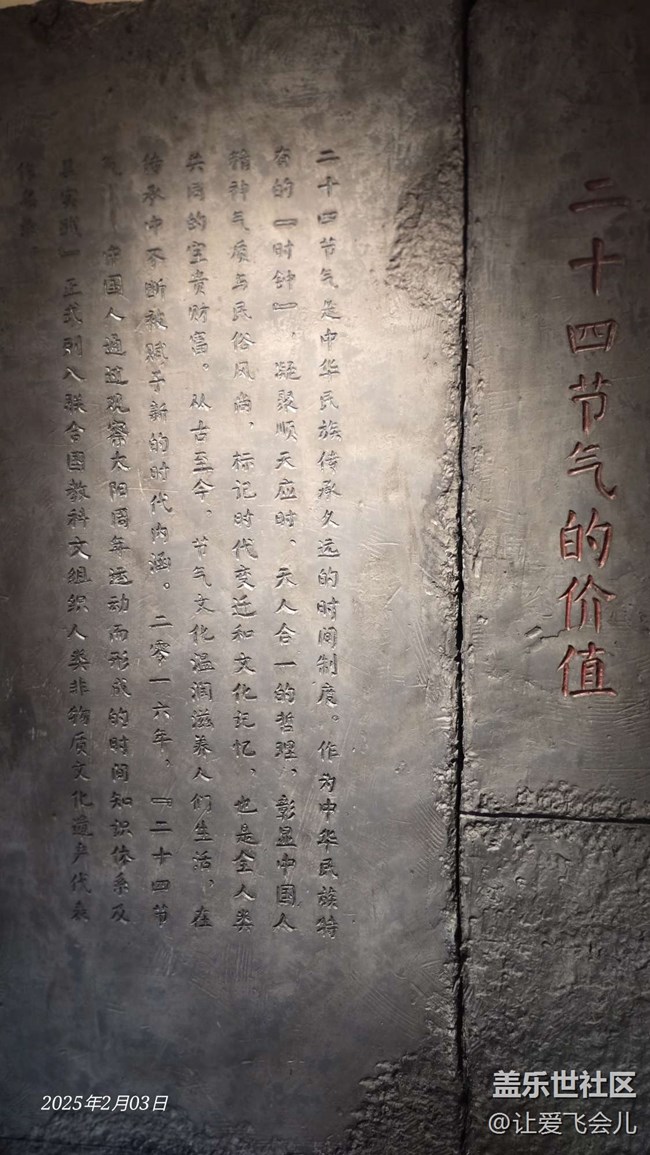 二十四节气的价值
二十四节气是中华民族传承久远的时间制度。作为中华民族特
有的『时钟』，凝聚顺天应时、天人合一的哲理，彰显中国人
精神气质与民俗风尚，标记时代变迁和文化记忆，也是全人类
共同的宝贵财富。从古至今，节气文化温润滋养人们生活，在
传承中不断被赋予新的时代内涵。二零一六年，『二十四节
气——中国人通过观察太阳周年运动而形成的时间知识体系及
其实践』正式列入联合国教科文组织人类非物质文化遗产代表
作名录。
2025年2月03日
盖乐世社区
@让爱飞会儿